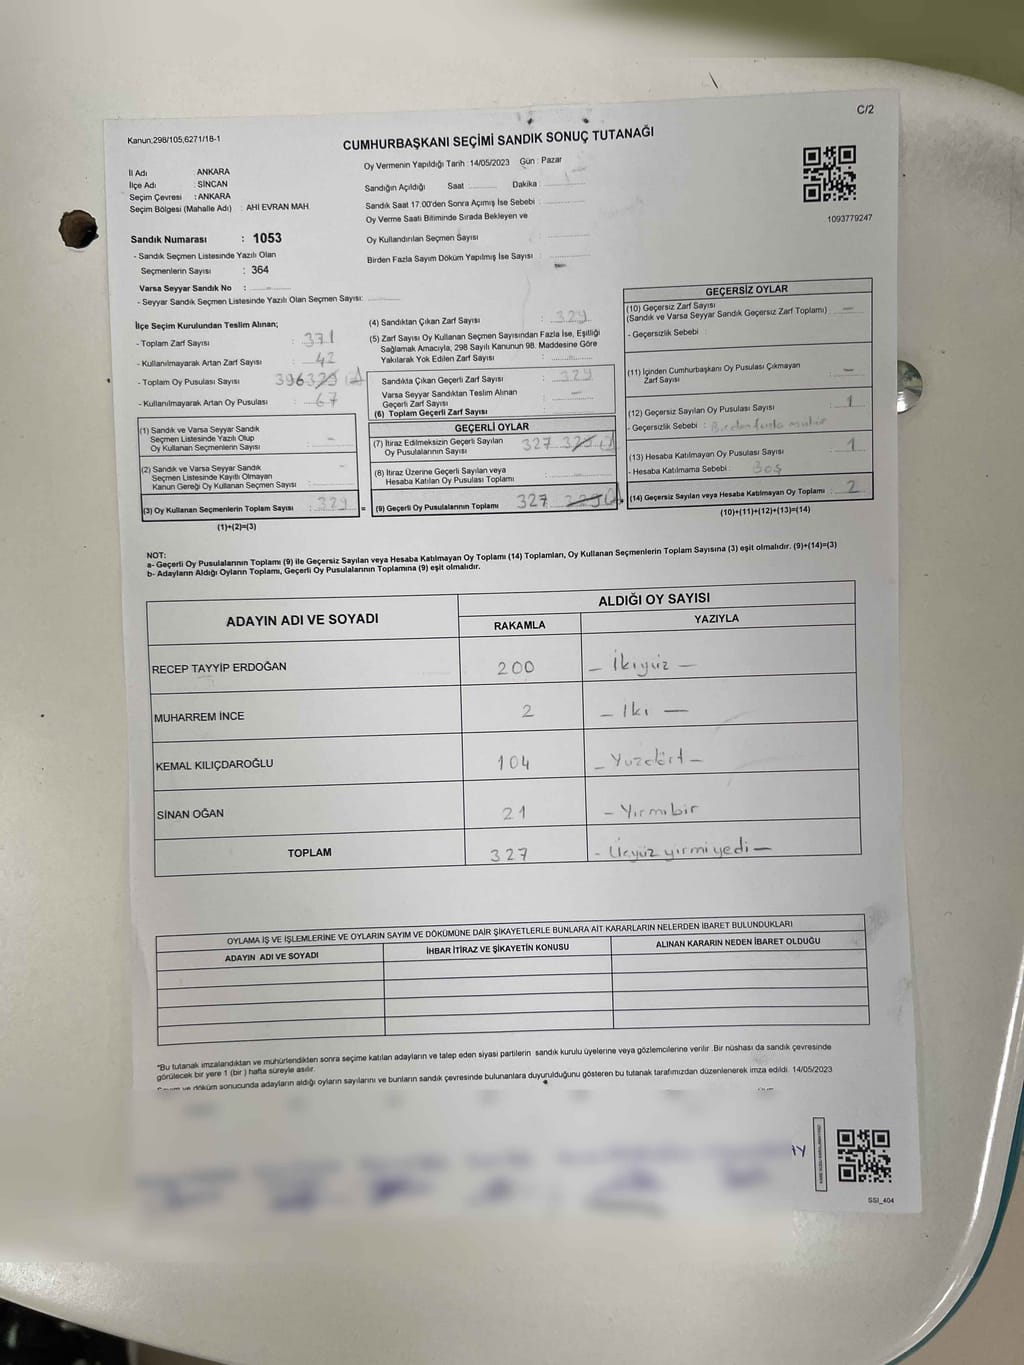 C/2
Kanun;298/105,6271/18-1
CUMHURBAŞKANI SEÇİMİ SANDIK SONUÇ TUTANAĞI
İl Adı : ANKARA
İlçe Adı : SİNCAN
Seçim Çevresi : ANKARA
Seçim Bölgesi (Mahalle Adı) : AHİ EVRAN MAH.
Oy Vermenin Yapıldığı Tarih :14/05/2023 Gün : Pazar
Sandığın Açıldığı Saat : Dakika :
Sandık Saat 17.00'den Sonra Açımış İse Sebebi :
Oy Verme Saati Bitiminde Sırada Bekleyen ve
Oy Kullandırılan Seçmen Sayısı :
Birden Fazla Sayım Döküm Yapılmış İse Sayısı :
1093779247
Sandık Numarası : 1053
- Sandık Seçmen Listesinde Yazılı Olan
Seçmenlerin Sayısı : 364
Varsa Seyyar Sandık No :
- Seyyar Sandık Seçmen Listesinde Yazılı Olan Seçmen Sayısı:
İlçe Seçim Kurulundan Teslim Alınan;
- Toplam Zarf Sayısı : 371
- Kullanılmayarak Artan Zarf Sayısı : 42
- Toplam Oy Pusulası Sayısı 396
- Kullanılmayarak Artan Oy Pusulası : 67
(1) Sandık ve Varsa Seyyar Sandık
Seçmen Listesinde Yazılı Olup
Oy Kullanan Seçmenlerin Sayısı : -
(2) Sandık ve Varsa Seyyar Sandık
Seçmen Listesinde Kayıtlı Olmayan
Kanun Gereği Oy Kullanan Seçmen Sayısı : -
(3) Oy Kullanan Seçmenlerin Toplam Sayısı : 329
(1)+(2)=(3)
(4) Sandıktan Çıkan Zarf Sayısı : 329
(5) Zarf Sayısı Oy Kullanan Seçmen Sayısından Fazla İse, Eşitliği
Sağlamak Amacıyla, 298 Sayılı Kanunun 98. Maddesine Göre
Yakılarak Yok Edilen Zarf Sayısı :
Sandıkta Çıkan Geçerli Zarf Sayısı : 329
Varsa Seyyar Sandıktan Teslim Alınan
Geçerli Zarf Sayısı : -
(6) Toplam Geçerli Zarf Sayısı :
GEÇERLİ OYLAR
(7) İtiraz Edilmeksizin Geçerli Sayılan
Oy Pusulalarının Sayısı 327
(8) İtiraz Üzerine Geçerli Sayılan veya
Hesaba Katılan Oy Pusulası Toplamı : -
= (9) Geçerli Oy Pusulalarının Toplamı 327
+
GEÇERSİZ OYLAR
(10) Geçersiz Zarf Sayısı
(Sandık ve Varsa Seyyar Sandık Geçersiz Zarf Toplamı) : -
- Geçersizlik Sebebi :
(11) İçinden Cumhurbaşkanı Oy Pusulası Çıkmayan
Zarf Sayısı : -
(12) Geçersiz Sayılan Oy Pusulası Sayısı : 1
- Geçersizlik Sebebi : Birden fazla mühür
(13) Hesaba Katılmayan Oy Pusulası Sayısı : 1
- Hesaba Katılmama Sebebi : Boş
(14) Geçersiz Sayılan veya Hesaba Katılmayan Oy Toplamı : 2
(10)+(11)+(12)+(13)=(14)
NOT:
a- Geçerli Oy Pusulalarının Toplamı (9) ile Geçersiz Sayılan veya Hesaba Katılmayan Oy Toplamı (14) Toplamları, Oy Kullanan Seçmenlerin Toplam Sayısına (3) eşit olmalıdır. (9)+(14)=(3)
b- Adayların Aldığı Oyların Toplamı, Geçerli Oy Pusulalarının Toplamına (9) eşit olmalıdır.
ADAYIN ADI VE SOYADI ALDIĞI OY SAYISI
RAKAMLA YAZIYLA
RECEP TAYYİP ERDOĞAN 200 - İkiyüz -
MUHARREM İNCE 2 - Iki -
KEMAL KILIÇDAROĞLU 104 - Yüzdört -
SİNAN OĞAN 21 - Yirmibir
TOPLAM 327 - Üçyüz yirmiyedi -
OYLAMA İŞ VE İŞLEMLERİNE VE OYLARIN SAYIM VE DÖKÜMÜNE DAİR ŞİKAYETLERLE BUNLARA AİT KARARLARIN NELERDEN İBARET BULUNDUKLARI
ADAYIN ADI VE SOYADI İHBAR İTİRAZ VE ŞİKAYETİN KONUSU ALINAN KARARIN NEDEN İBARET OLDUĞU
*Bu tutanak imzalandıktan ve mühürlendikten sonra seçime katılan adayların ve talep eden siyasi partilerin sandık kurulu üyelerine veya gözlemcilerine verilir .Bir nüshası da sandık çevresinde
görülecek bir yere 1 (bir ) hafta süreyle asılır.
Sayım ve döküm sonucunda adayların aldığı oyların sayılarını ve bunların sandık çevresinde bulunanlara duyurulduğunu gösteren bu tutanak tarafımızdan düzenlenerek imza edildi. 14/05/2023
SSI_404